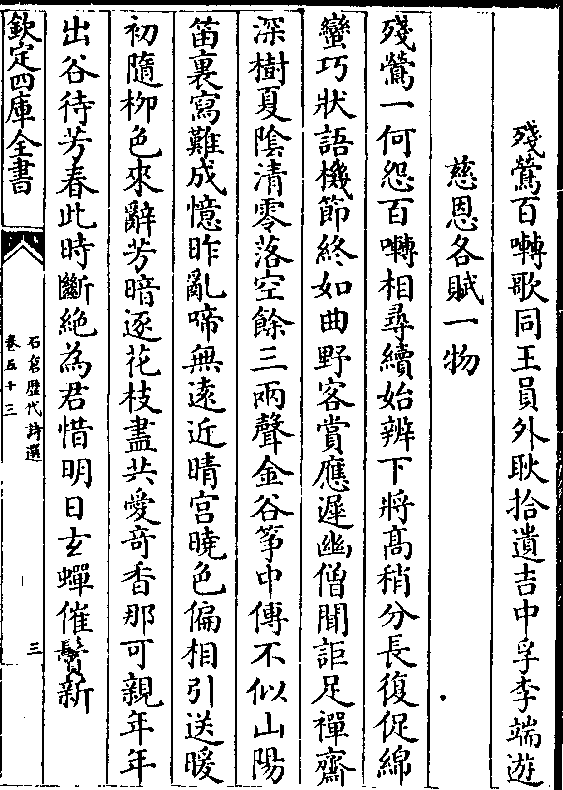 殘鶯百囀歌同王員外耿拾遺吉中孚李端遊
慈恩各賦一物
殘鶯一何怨百囀相尋續始辨下將高稍分長復促綿
蠻巧狀語機節終如曲野客賞應遲幽僧聞詎足禪齋
深樹夏陰清零落空餘三兩聲金谷筝中傳不似山陽
笛裏寫難成憶昨亂啼無遠近晴宮曉色偏相引送暖
初隨栁色來辭芳暗逐花枝盡共愛竒香那可親年年
出谷待芳春此時斷絶為君惜明日玄蟬催鬢新
欽定四庫全書
石倉歴代詩選
卷五十三
三